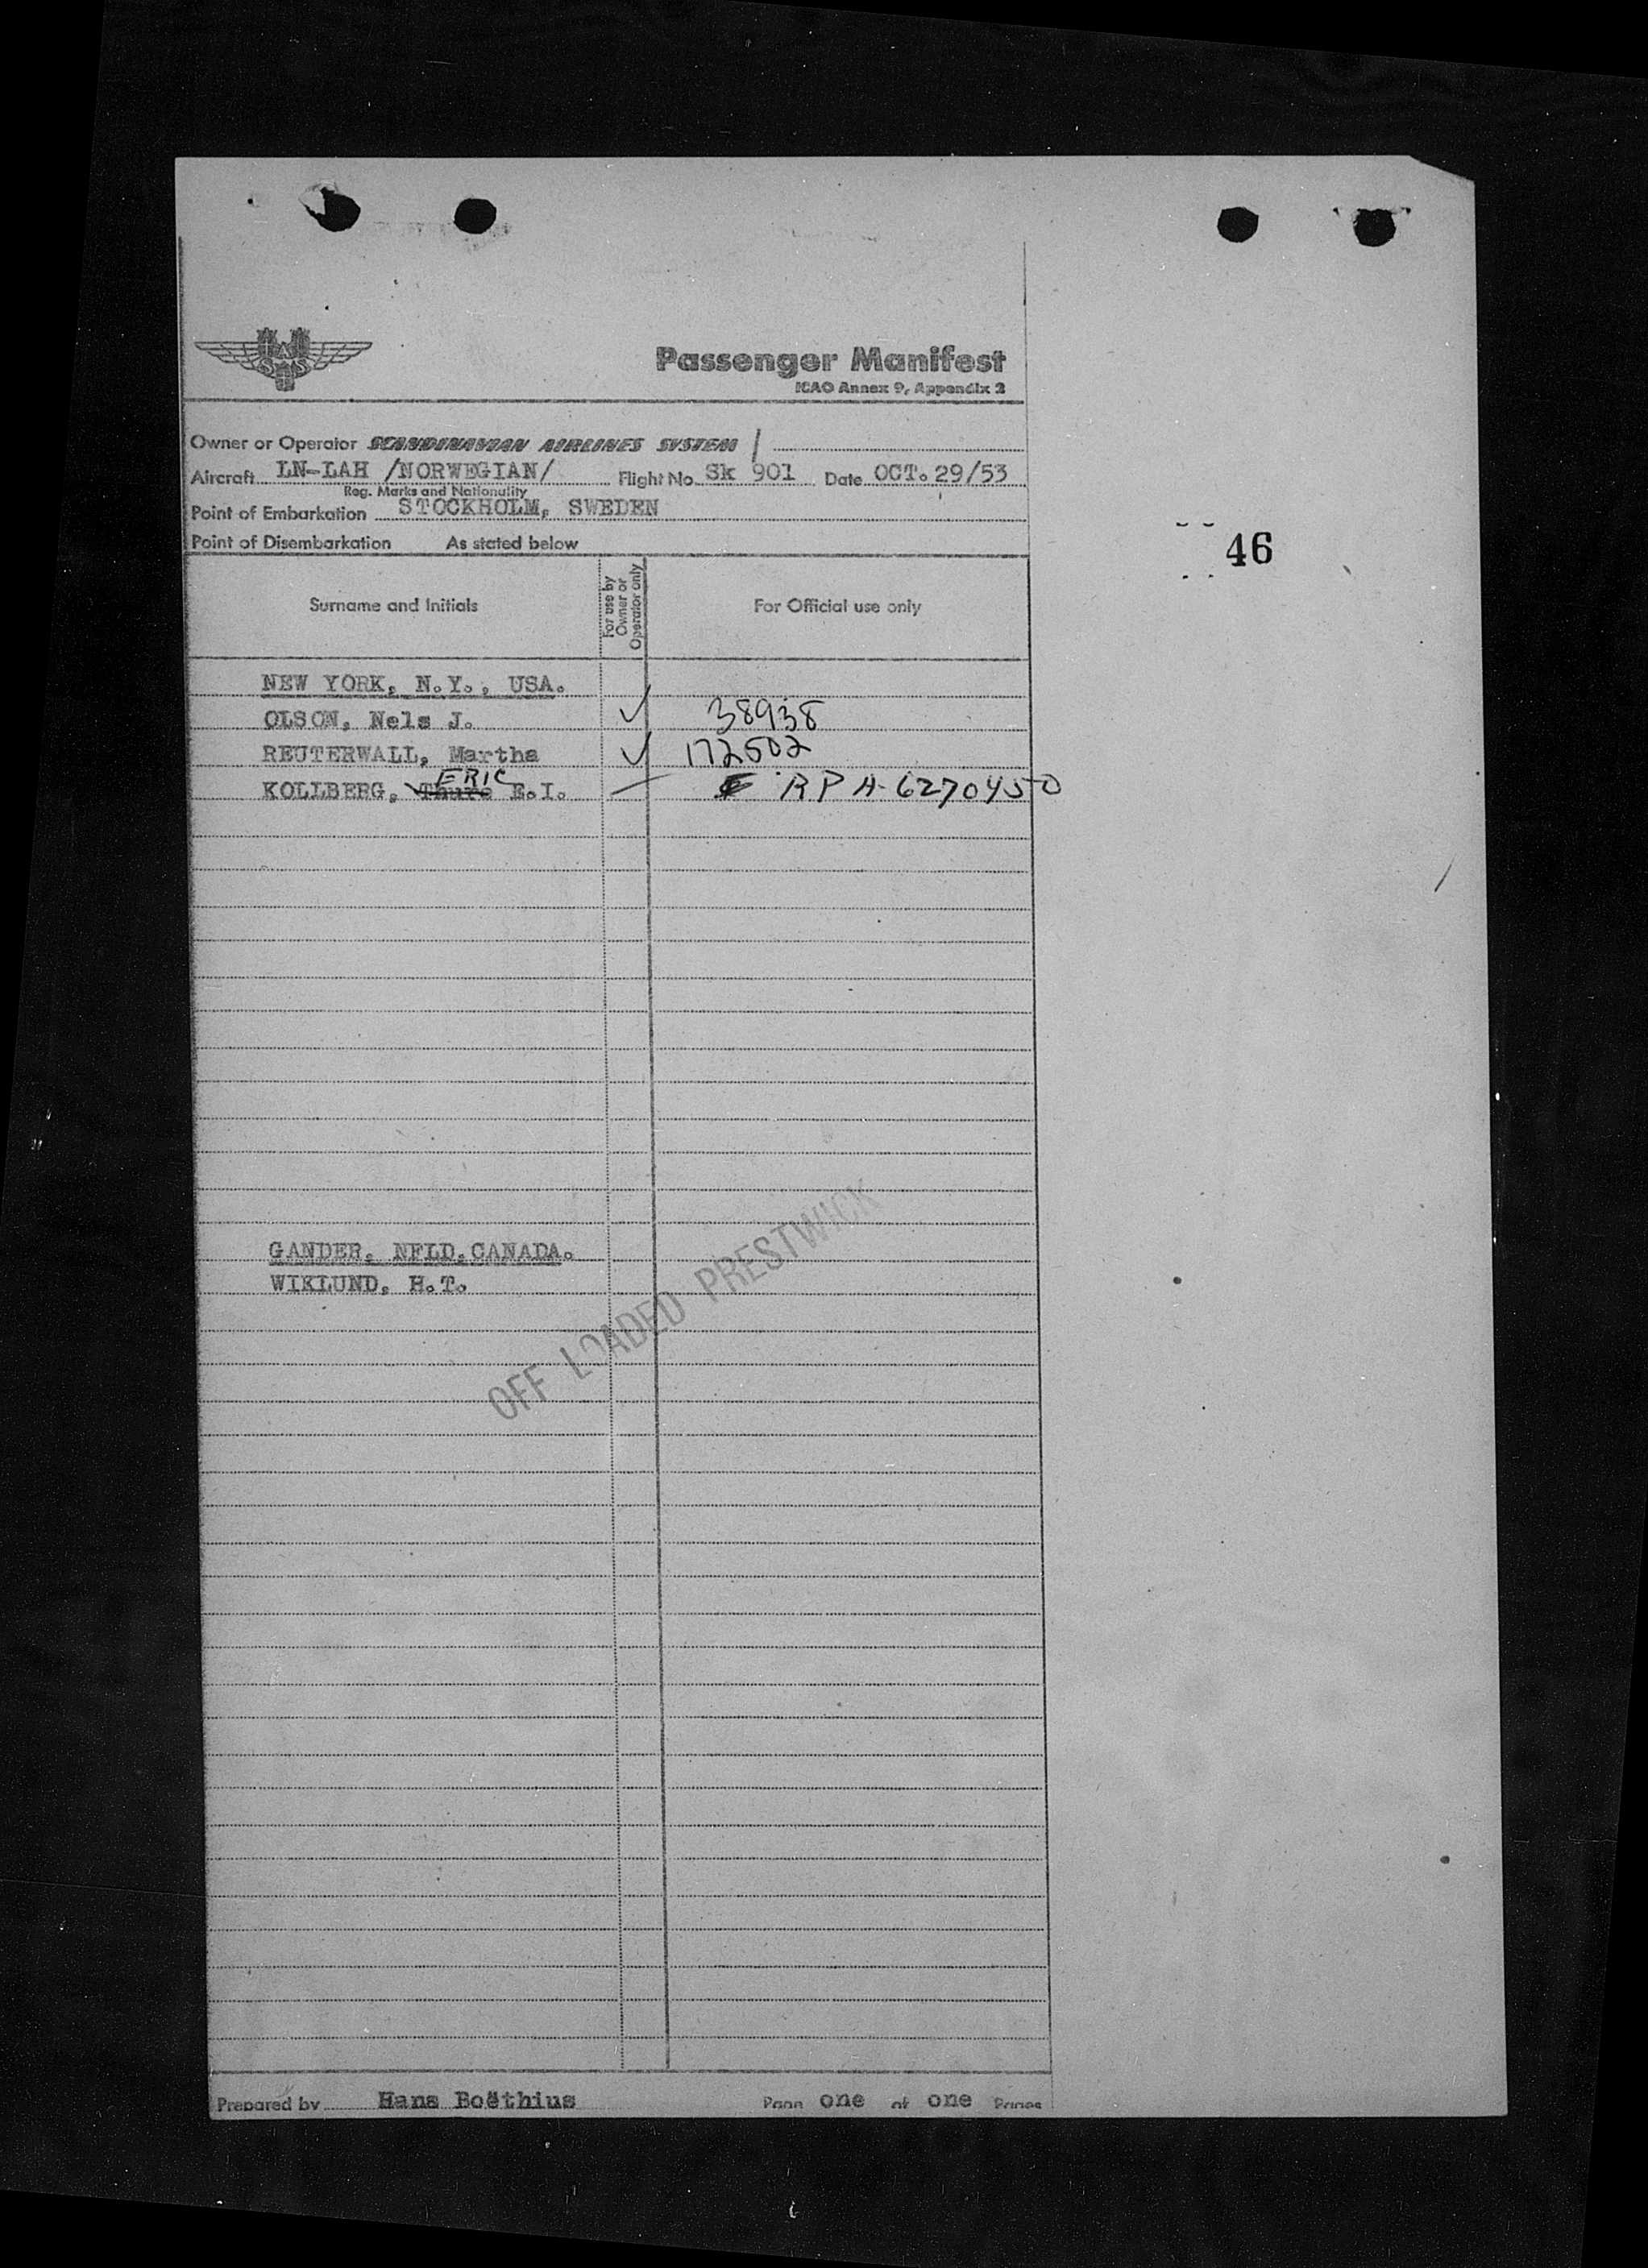 SAS
Passenger Manifest
ICAO Annex 9, Appendix 2
Owner or Operator SCANDINAVIAN AIRLINES SYSTEM /
Aircraft LN-LAH /NORWEGIAN/ Flight No. Sk 901 Date OCT. 29/53
Reg. Marks and Nationality
Point of Embarkation STOCKHOLM, SWEDEN
Point of Disembarkation As stated below
46
Surname and Initials For use by Owner or Operator only For Official use only
NEW YORK, N.Y., USA.
OLSON, Nels J. ✓ 38938
REUTERWALL, Martha ✓ 172502
ERIC
KOLLBERG, Thure E.I. RP A-6270450
GANDER, NFLD, CANADA.
WIKLUND, H.T.
OFF LOADED PRESTWICK
Prepared by Hans Boëthius Page one of one Pages